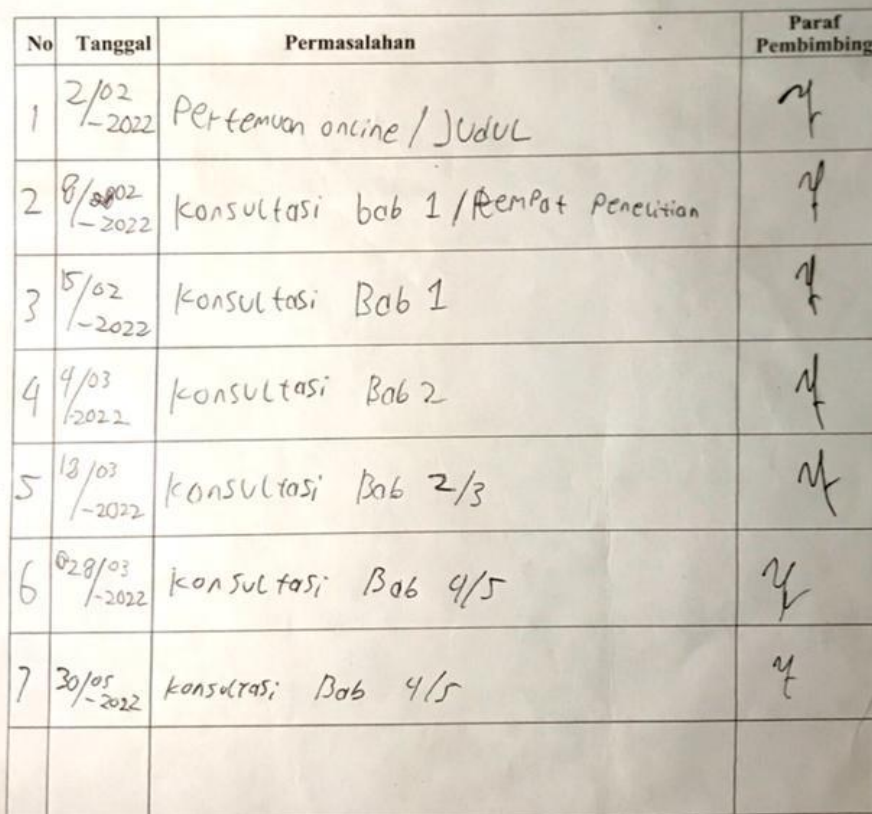 No Tanggal Permasalahan Paraf Pembimbing
1 2/02-2022 Pertemuan online / JUDUL
2 8/02-2022 Konsultasi bab 1 / tempat Penelitian
3 15/02-2022 Konsultasi Bab 1
4 4/03-2022 Konsultasi Bab 2
5 18/03-2022 Konsultasi Bab 2/3
6 28/03-2022 Konsultasi Bab 4/5
7 30/05-2022 Konsultasi Bab 4/5